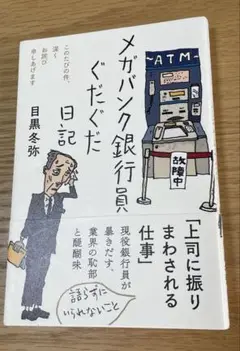 このたびの件、
深く
お詫び
申しあげます
メガバンク銀行員
ぐだぐだ
日記
目黒冬弥
ATM
故障中
「上司に振り
まわされる
仕事」
現役銀行員が
暴きだす、
業界の恥部
と醍醐味
語らずに
いられないこと